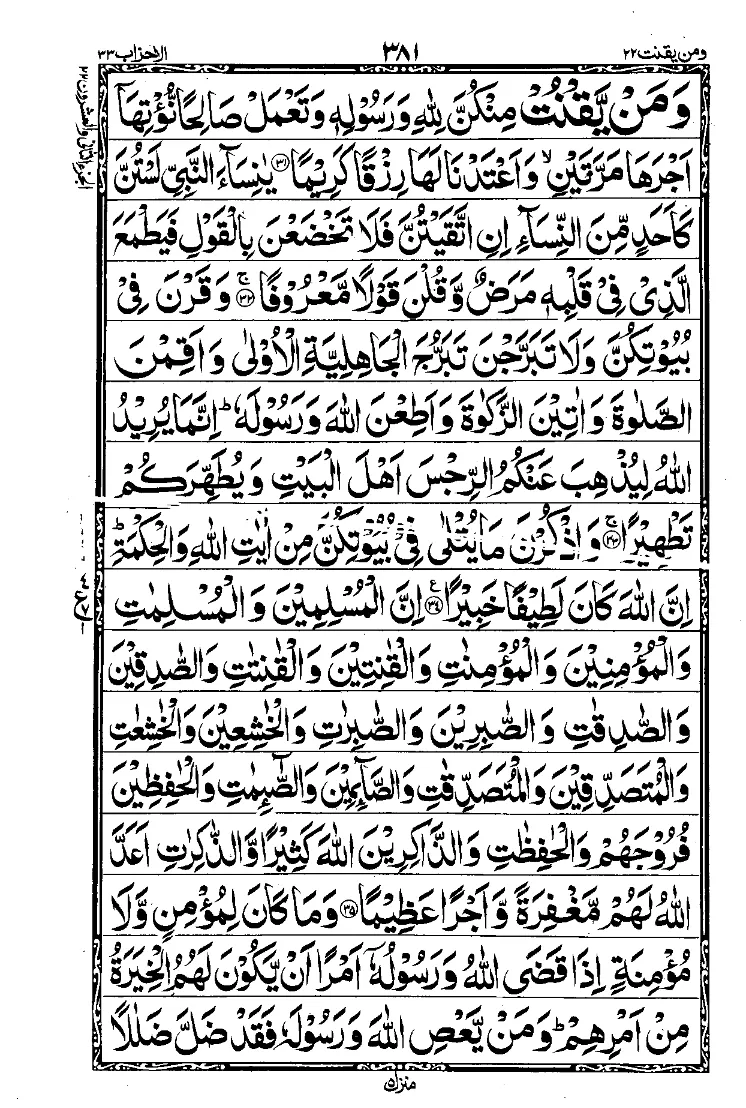 ومن یقنت ۲۲
۳۸۱
الاحزاب ۳۳
وَمَنْ يَّقْنُتْ مِنْكُنَّ لِلّٰهِ وَرَسُوْلِهٖ وَتَعْمَلْ صَالِحًا نُّؤْتِهَاۤ
اَجْرَهَا مَرَّتَيْنِ ۙ وَاَعْتَدْنَا لَهَا رِزْقًا كَرِيْمًا ﴿۳۱﴾ يٰنِسَآءَ النَّبِيِّ لَسْتُنَّ
كَاَحَدٍ مِّنَ النِّسَآءِ اِنِ اتَّقَيْتُنَّ فَلَا تَخْضَعْنَ بِالْقَوْلِ فَيَطْمَعَ
الَّذِيْ فِيْ قَلْبِهٖ مَرَضٌ وَّقُلْنَ قَوْلًا مَّعْرُوْفًا ۚ﴿۳۲﴾ وَقَرْنَ فِيْ
بُيُوْتِكُنَّ وَلَا تَبَرَّجْنَ تَبَرُّجَ الْجَاهِلِيَّةِ الْاُوْلٰى وَاَقِمْنَ
الصَّلٰوةَ وَاٰتِيْنَ الزَّكٰوةَ وَاَطِعْنَ اللّٰهَ وَرَسُوْلَهٗ ؕ اِنَّمَا يُرِيْدُ
اللّٰهُ لِيُذْهِبَ عَنْكُمُ الرِّجْسَ اَهْلَ الْبَيْتِ وَيُطَهِّرَكُمْ
تَطْهِيْرًا ۚ﴿۳۳﴾ وَاذْكُرْنَ مَا يُتْلٰى فِيْ بُيُوْتِكُنَّ مِنْ اٰيٰتِ اللّٰهِ وَالْحِكْمَةِ ؕ
اِنَّ اللّٰهَ كَانَ لَطِيْفًا خَبِيْرًا ﴿۳۴﴾ ع اِنَّ الْمُسْلِمِيْنَ وَالْمُسْلِمٰتِ
وَالْمُؤْمِنِيْنَ وَالْمُؤْمِنٰتِ وَالْقٰنِتِيْنَ وَالْقٰنِتٰتِ وَالصّٰدِقِيْنَ
وَالصّٰدِقٰتِ وَالصّٰبِرِيْنَ وَالصّٰبِرٰتِ وَالْخٰشِعِيْنَ وَالْخٰشِعٰتِ
وَالْمُتَصَدِّقِيْنَ وَالْمُتَصَدِّقٰتِ وَالصَّآىِٕمِيْنَ وَالصّٰٓىِٕمٰتِ وَالْحٰفِظِيْنَ
فُرُوْجَهُمْ وَالْحٰفِظٰتِ وَالذَّاكِرِيْنَ اللّٰهَ كَثِيْرًا وَّالذّٰكِرٰتِ اَعَدَّ
اللّٰهُ لَهُمْ مَّغْفِرَةً وَّاَجْرًا عَظِيْمًا ﴿۳۵﴾ وَمَا كَانَ لِمُؤْمِنٍ وَّلَا
مُؤْمِنَةٍ اِذَا قَضَى اللّٰهُ وَرَسُوْلُهٗۤ اَمْرًا اَنْ يَّكُوْنَ لَهُمُ الْخِيَرَةُ
مِنْ اَمْرِهِمْ ؕ وَمَنْ يَّعْصِ اللّٰهَ وَرَسُوْلَهٗ فَقَدْ ضَلَّ ضَلٰلًا
منزل ۵